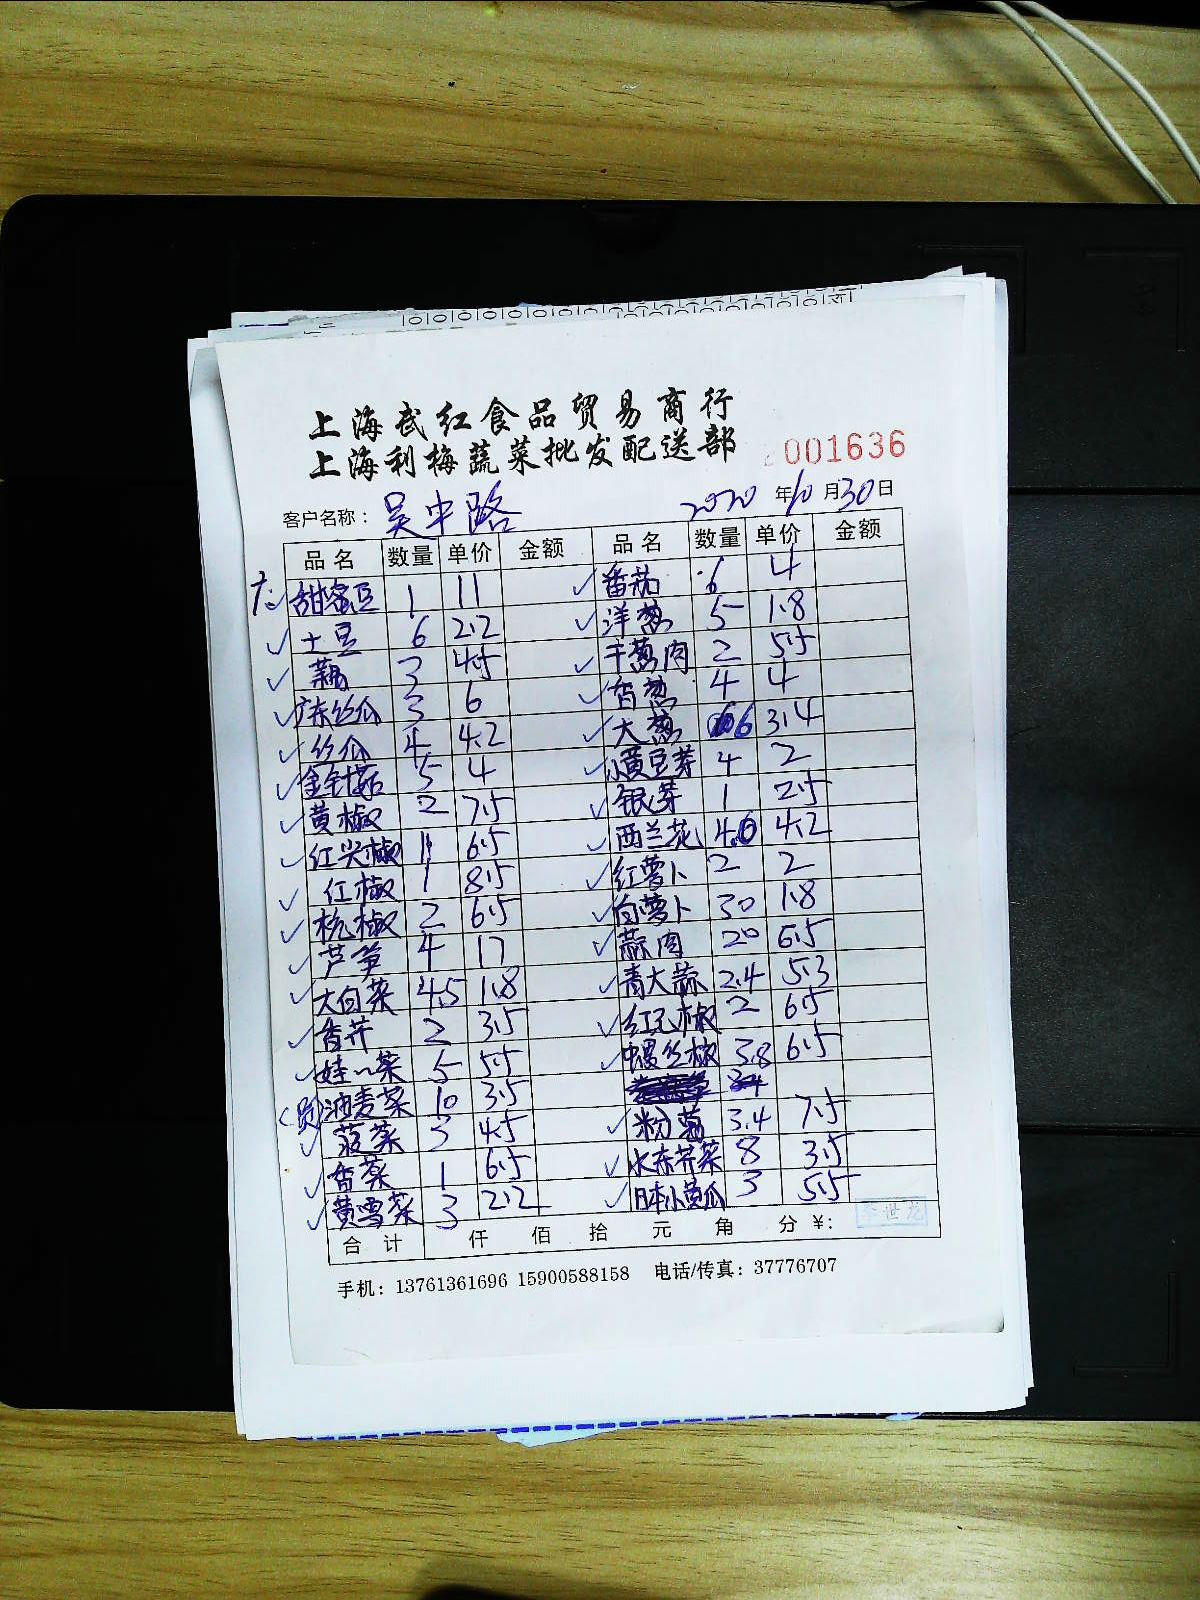 上海武红食品贸易商行
上海利梅蔬菜批发配送部
001636
客户名称：吴中路 2020年10月30日
品名 数量 单价 金额 品名 数量 单价 金额
甜蜜豆 1 11 番茄 6 4
土豆 6 2.2 洋葱 5 1.8
藕 3 4.5 干葱肉 2 5.5
广东丝瓜 3 6 香葱 4 4
丝瓜 4 4.2 大葱 6 3.4
金针菇 5 4 小黄豆芽 4 2
黄椒 2 7.5 银芽 1 2.5
红尖椒 1 6.5 西兰花 4.6 4.2
红椒 1 8.5 红萝卜 2 2
杭椒 2 6.5 白萝卜 30 1.8
芦笋 4 17 蒜肉 20 6.5
大白菜 4.5 1.8 青大蒜 2.4 5.3
香芹 2 3.5 红元椒 2 6.5
娃娃菜 5 5.5 螺丝椒 3.8 6.5
(员)油麦菜 10 3.5
菠菜 3 4.5 粉葛 3.4 7.5
香菜 1 6.5 水东芥菜 8 3.5
黄雪菜 3 2.2 日本小黄瓜 3 5.5
合计 仟 佰 拾 元 角 分 ¥:
李世龙
手机：13761361696 15900588158 电话/传真：37776707